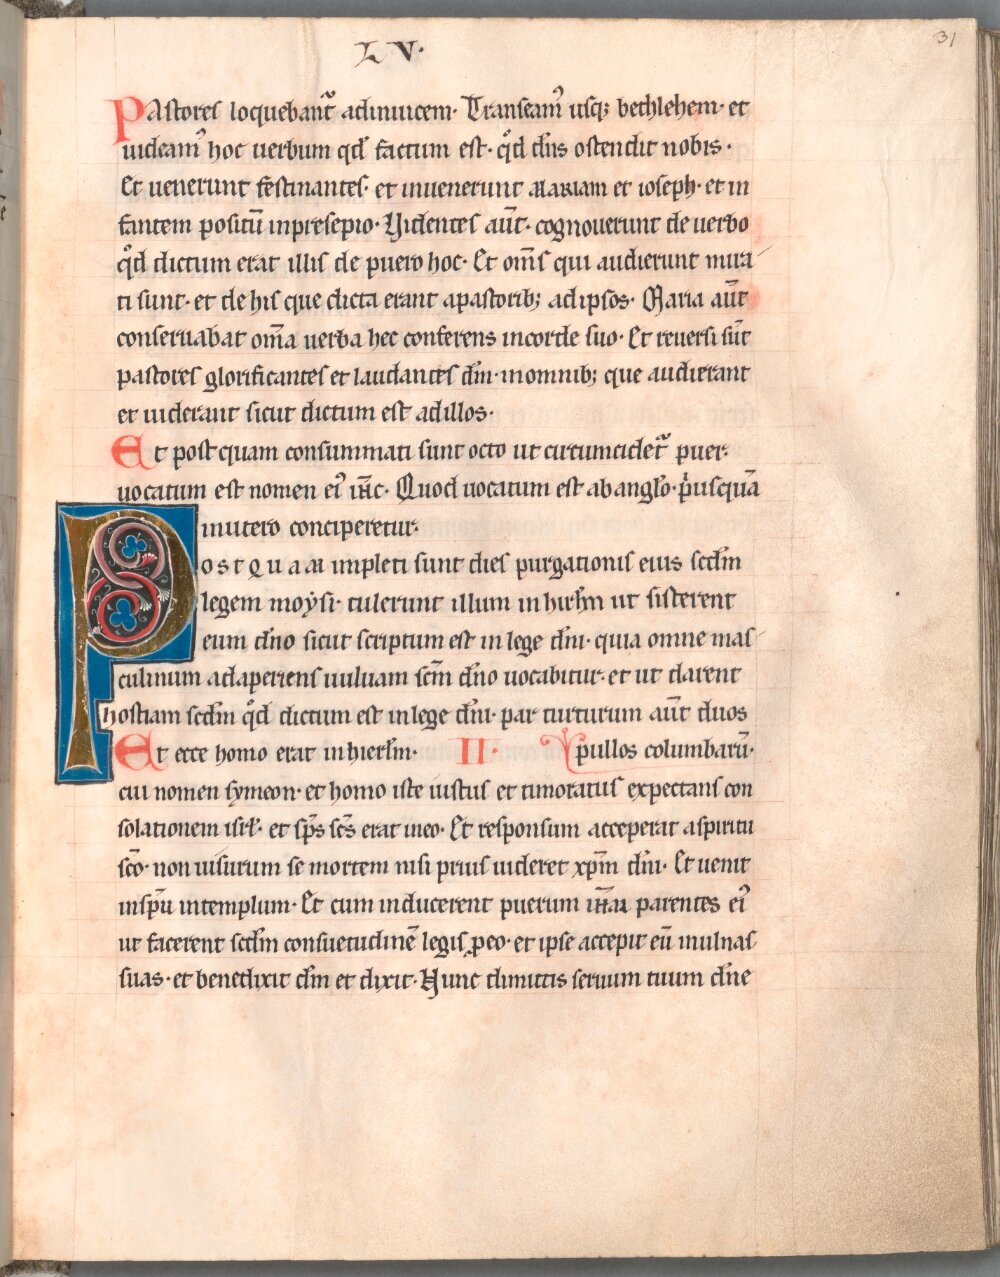 LV.
31
PAstores loquebant᷑ adinuicem· Transeam᷒ usq; bethlehem· et
uideam᷒ hoc uerbum qd̄ factum est· qͦd dn̄s ostendit nobis·
Et uenerunt festinantes· et inuenerunt MARIAM et ioseph· et in
fantem positū inpresepio· Uidentes aut̄· cognouerunt de uerbo
qͦd dictum erat illis de puero hoc· Et om̄s qui audierunt mira
ti sunt· et de his que dicta erant apastorib; ad ipsos· Maria aut̄
conseruabat om̄a uerba hec conferens incorde suo· Et reuersi sūt
pastores glorificantes et laudantes dm̄· inomnib; que audierant
et uiderant sicut dictum est adillos·
Et postquam consummati sunt octo ut circumcideret᷑ puer·
uocatum est nomen ei᷒ ih̄c· Quod uocatum est ab anglo· p̓usquā
inutero conciperetur·
POSTQUAM impleti sunt dies purgationis eius scdm̄
legem moẏsi· tulerunt illum in hirłm ut sisterent
eum dn̄o sicut scriptum est in lege dn̄i· quia omne mas
culinum adaperiens uuluam scm̄ dn̄o uocabitur· et ut darent
hostiam scdm̄ qͦd dictum est inlege dn̄i· par turturum aut̄ duos
Et ecce homo erat in hierłm· II· pullos columbarū·
cui nomen sẏmeon· et homo iste iustus et timoratus expectans con
solationem isrł· et sp̄s sc̄s erat ineo· Et responsum acceperat aspiritu
sc̄o· non uisurum se mortem nisi prius uideret xpm̄ dn̄i· Et uenit
inspū intemplum· Et cum inducerent puerum ih̄m parentes ei᷒
ut facerent scdm̄ consuetudinē legis ꝓeo· et ipse accepit eū inulnas
suas· et benedixit dm̄ et dixit· Nunc dimittis seruum tuum dn̄e